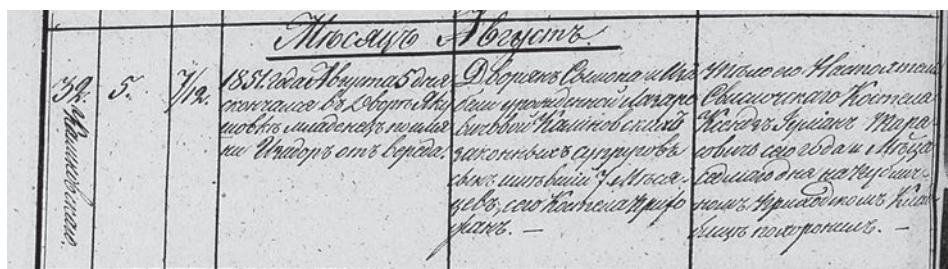 Мѣсяцъ Августъ.
32.
Калиновскаго.
5.
7/12.
1851 года Августа 5 дня
скончался въ Дворѣ Яку
шовкѣ младенецъ по име
ни Изидоръ отъ вереда.
Дворянъ Симона и Иза
бели урожденной Лазаро
вичовой Калиновскихъ
законныхъ супруговъ
сынъ имѣвшій 7 Мѣся
цевъ, сего Костела Прихо
жанъ. —
Тѣло его Настоятель
Свислочскаго Костела
Ксендзъ Тара
совичъ сего года и Мѣсяца
седмаго дня на
номъ Приходскомъ Клад
бищѣ похоронилъ. —